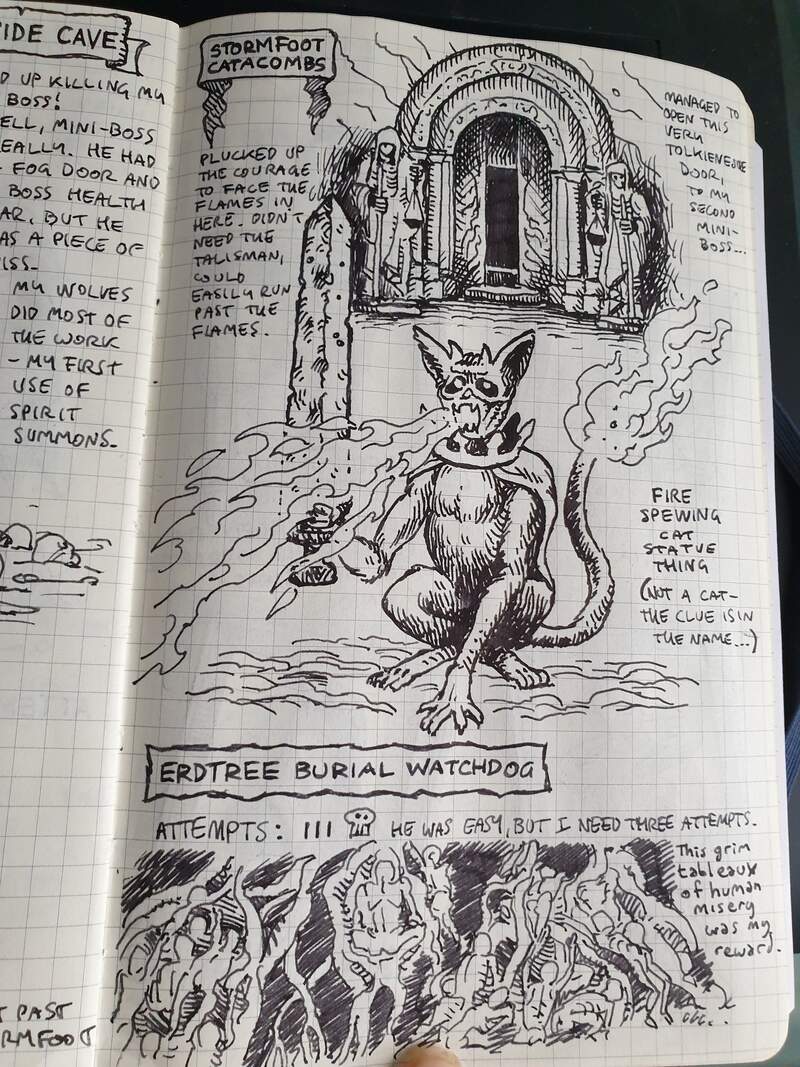 IDE CAVE
D UP KILLING MY
BOSS!
ELL, MINI-BOSS
EALLY. HE HAD
FOG DOOR AND
BOSS HEALTH
AR, BUT HE
AS A PIECE OF
ISS-
MY WOLVES
DID MOST OF
THE WORK
- MY FIRST
USE OF
SPIRIT
SUMMONS-
T PAST
RMFOOT
STORMFOOT
CATACOMBS
PLUCKED UP
THE COURAGE
TO FACE THE
FLAMES IN
HERE. DIDN'T
NEED THE
TALISMAN,
COULD
EASILY RUN
PAST THE
FLAMES.
MANAGED TO
OPEN THIS
VERY
TOLKIENESQUE
DOOR,
TO MY
SECOND
MINI-
BOSS...
FIRE
SPEWING
CAT
STATUE
THING
(NOT A CAT-
THE CLUE IS IN
THE NAME...)
ERDTREE BURIAL WATCHDOG
ATTEMPTS: III HE WAS EASY, BUT I NEED THREE ATTEMPTS.
This grim
tableaux
of human
misery
was my
reward.